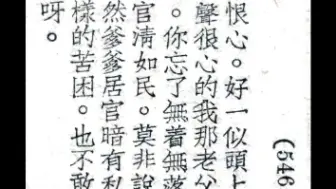 (546
恨心。好一似頭上
聲很心的我那老父
。你忘了無着無落
官清如民。莫非說
然爹爹居官暗有私
樣的苦困。也不敢
呀。